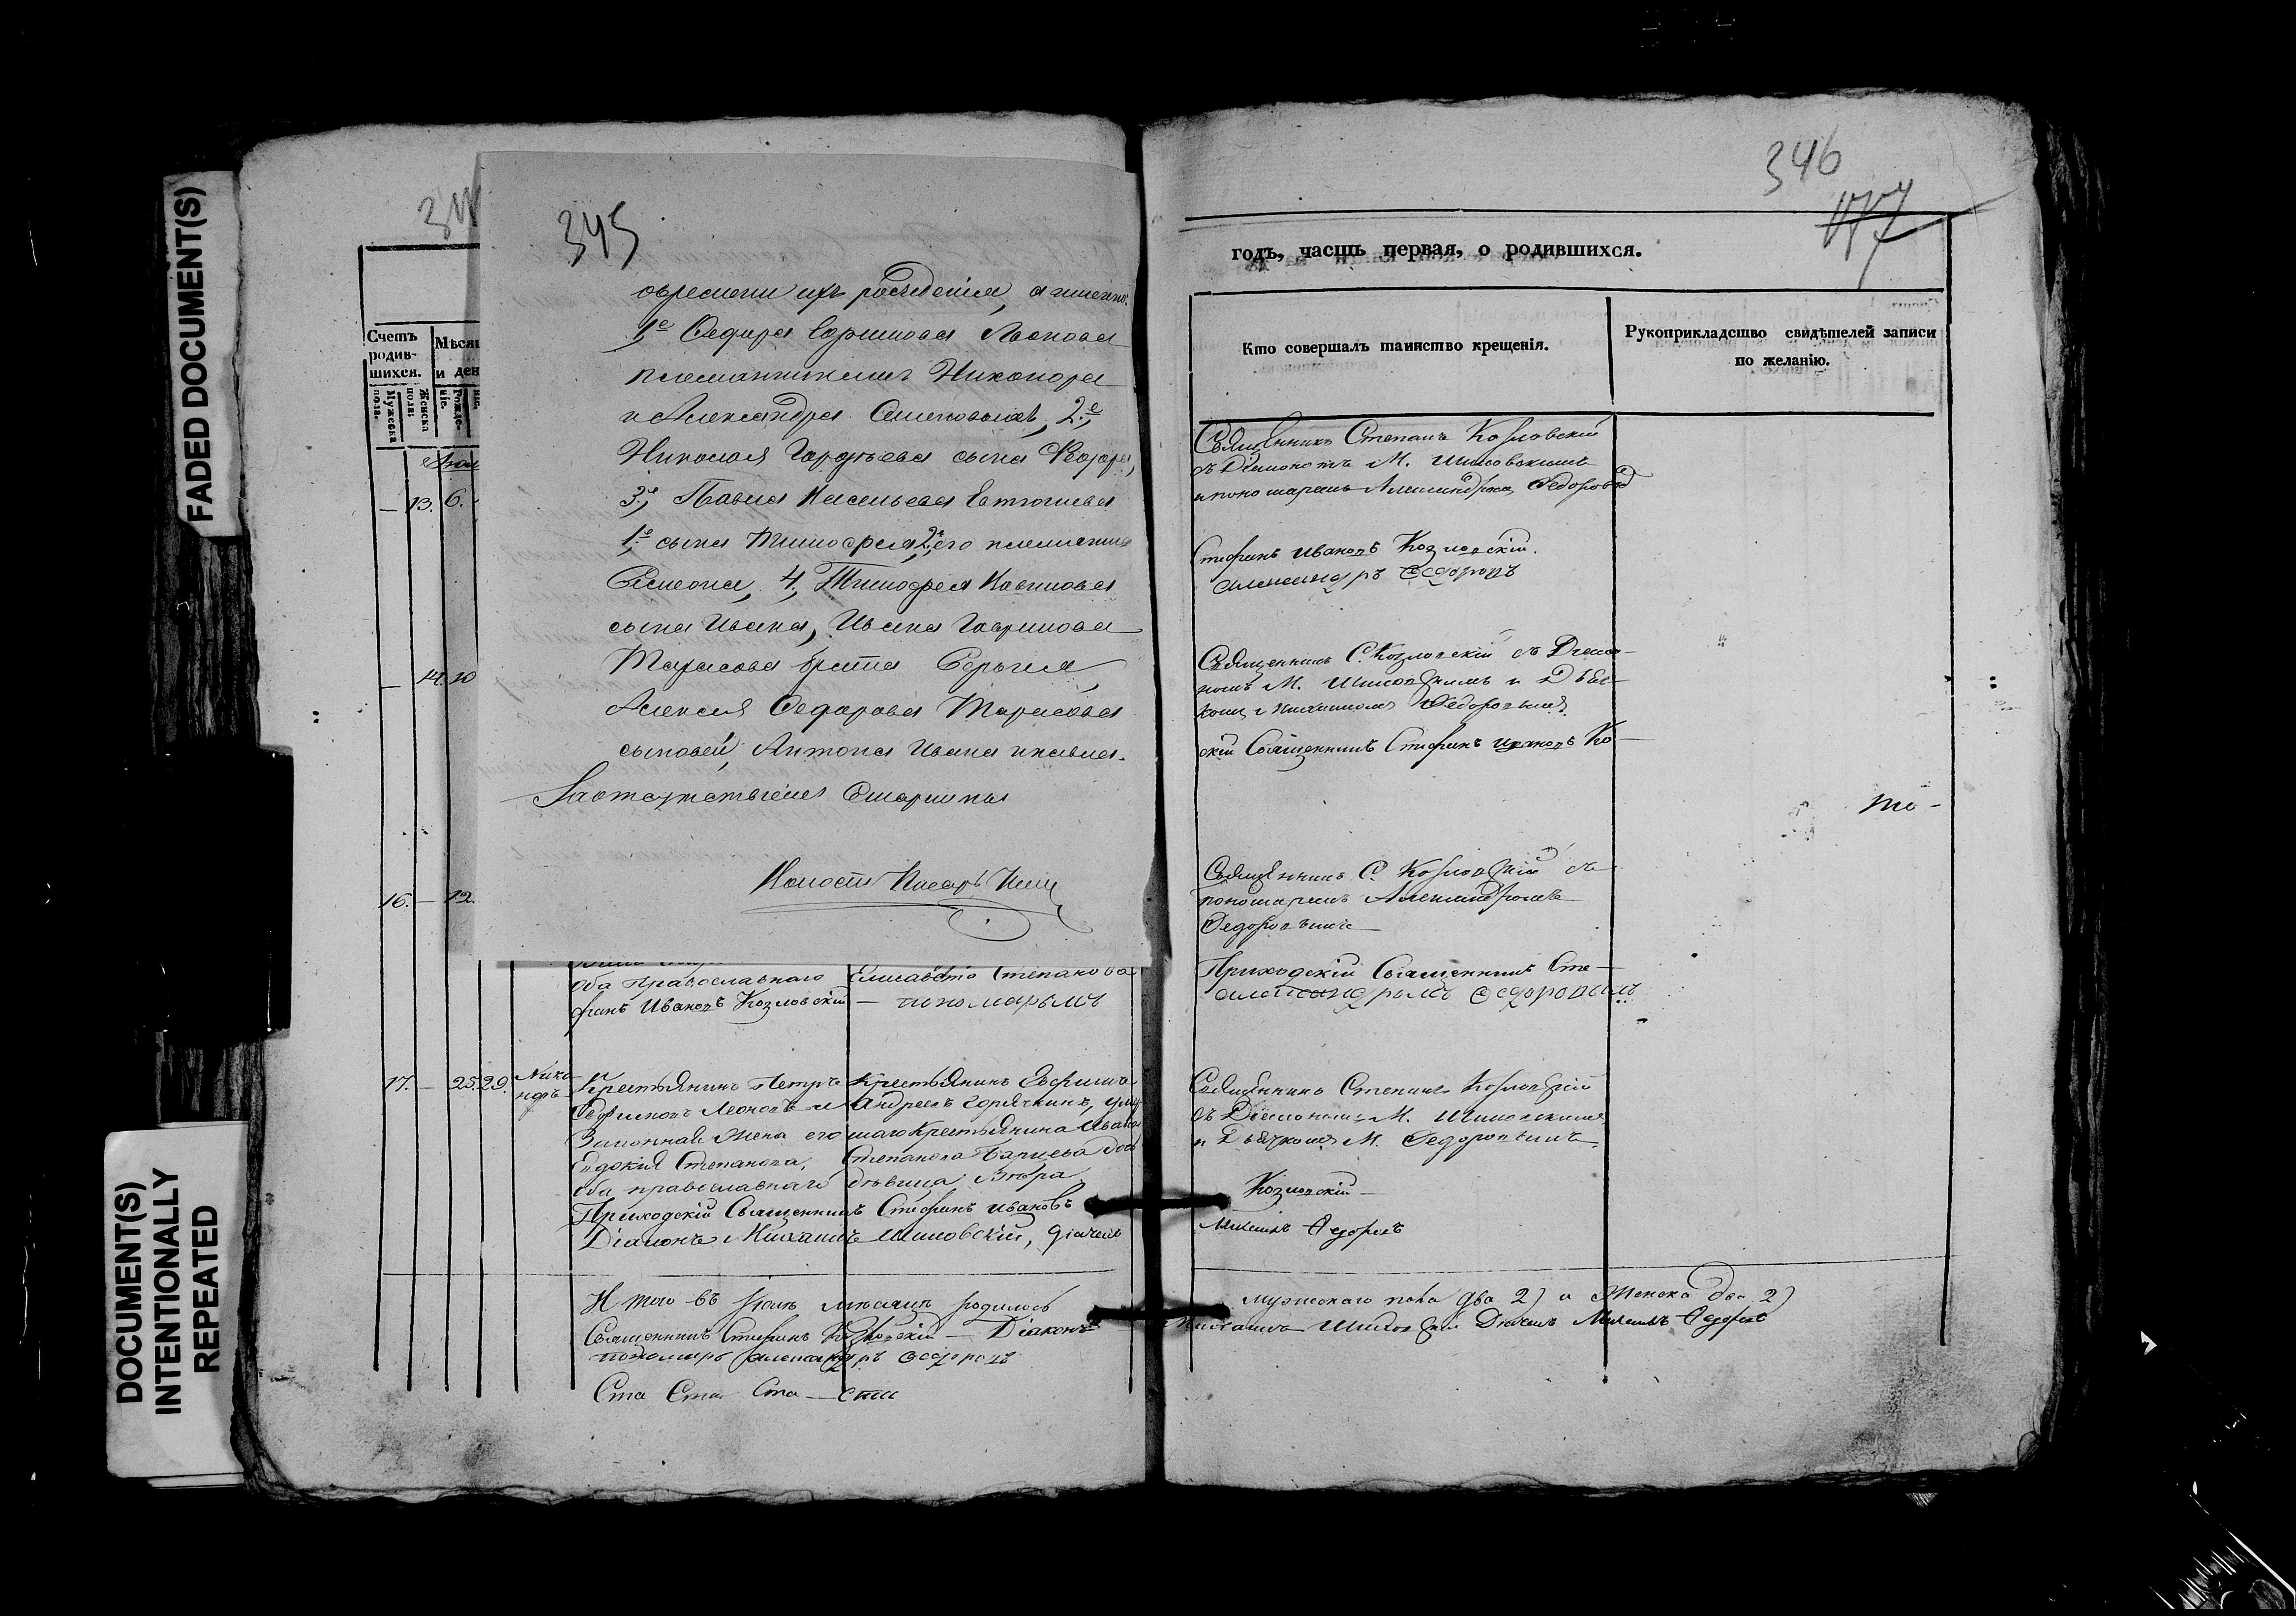 FADED DOCUMENT(S)
DOCUMENT(S)
INTENTIONALLY
REPEATED
345
о времени ихъ рожденія, а именно:
1е Федора Гаврилова Леонова
племянниковъ Никонора
и Александра Семеновыхъ, 2е,
Николая сына Федора,
3е, Павла Васильева Евтюшева
1е сына Тимофея 2е его племянника
Симеона, 4, Тимофея Павлова
сына Ивана, Ивана Гаврилова
Тарасова брата Сергея,
Алексея Федорова Тарасова
сыновей, Антона Ивана и Павла.
За отсутствіемъ Старшины
Волостн Писарь
Счетъ
родив-
шихся.
Мужеска
пола.
Женска
пола.
Мѣсяц
и ден
Рожде-
ніе.
13. 6.
14. 10
16. — 12.
оба Православнаго Елисавета Степанова
фанъ Ивановъ Козловскій — пономарьмъ
17. — 25. 29.Ника-
норъ
Крестьянинъ Петръ
Леоновъ и
Законная Жена его
Евдокия Степанова,
оба православнаго
Крестьянинъ Ефимъ
Андреевъ
Крестьянина Ивана
Степанова
дѣвица
Приходскій Священникъ Стефанъ Ивановъ
Діаконъ Михаилъ Шиловскій, дьячекъ
Итого въ Іюлѣ мѣсяцѣ родилось
Священникъ Стефанъ Козловскій — Діаконъ
пономарь Александръ Федоровъ
Ста Ста Ста — сти
346
177
годъ, часть первая, о родившихся.
Кто совершалъ таинство крещенія.
Рукоприкладство свидѣтелей записи
по желанію.
Священникъ Степанъ Козловскій
съ Діакономъ М. Шиловскимъ
и пономаремъ Александромъ Федоровъ
Стефанъ Ивановъ Козловскій.
Александръ Федоровъ
Священникъ С. Козловскій съ Діако-
номъ М. Шиловскимъ и Дьяч-
комъ Михаиломъ Федоровымъ
скій Священникъ Стефанъ Ивановъ Ко-
то-
Священникъ С. Козловскій съ
пономаремъ Александромъ
Федоровымъ
Приходскій Священникъ Сте-
Александромъ Федоровымъ
Священникъ Степанъ Козловскій
съ Діакономъ М. Шиловскимъ
и Дьячкомъ М. Федоровымъ
Козловскій
Михаилъ Федоровъ
мужескаго пола два 2) и Женска два 2)
Михаилъ Шиловскій Дьячекъ Михаилъ Федоровъ